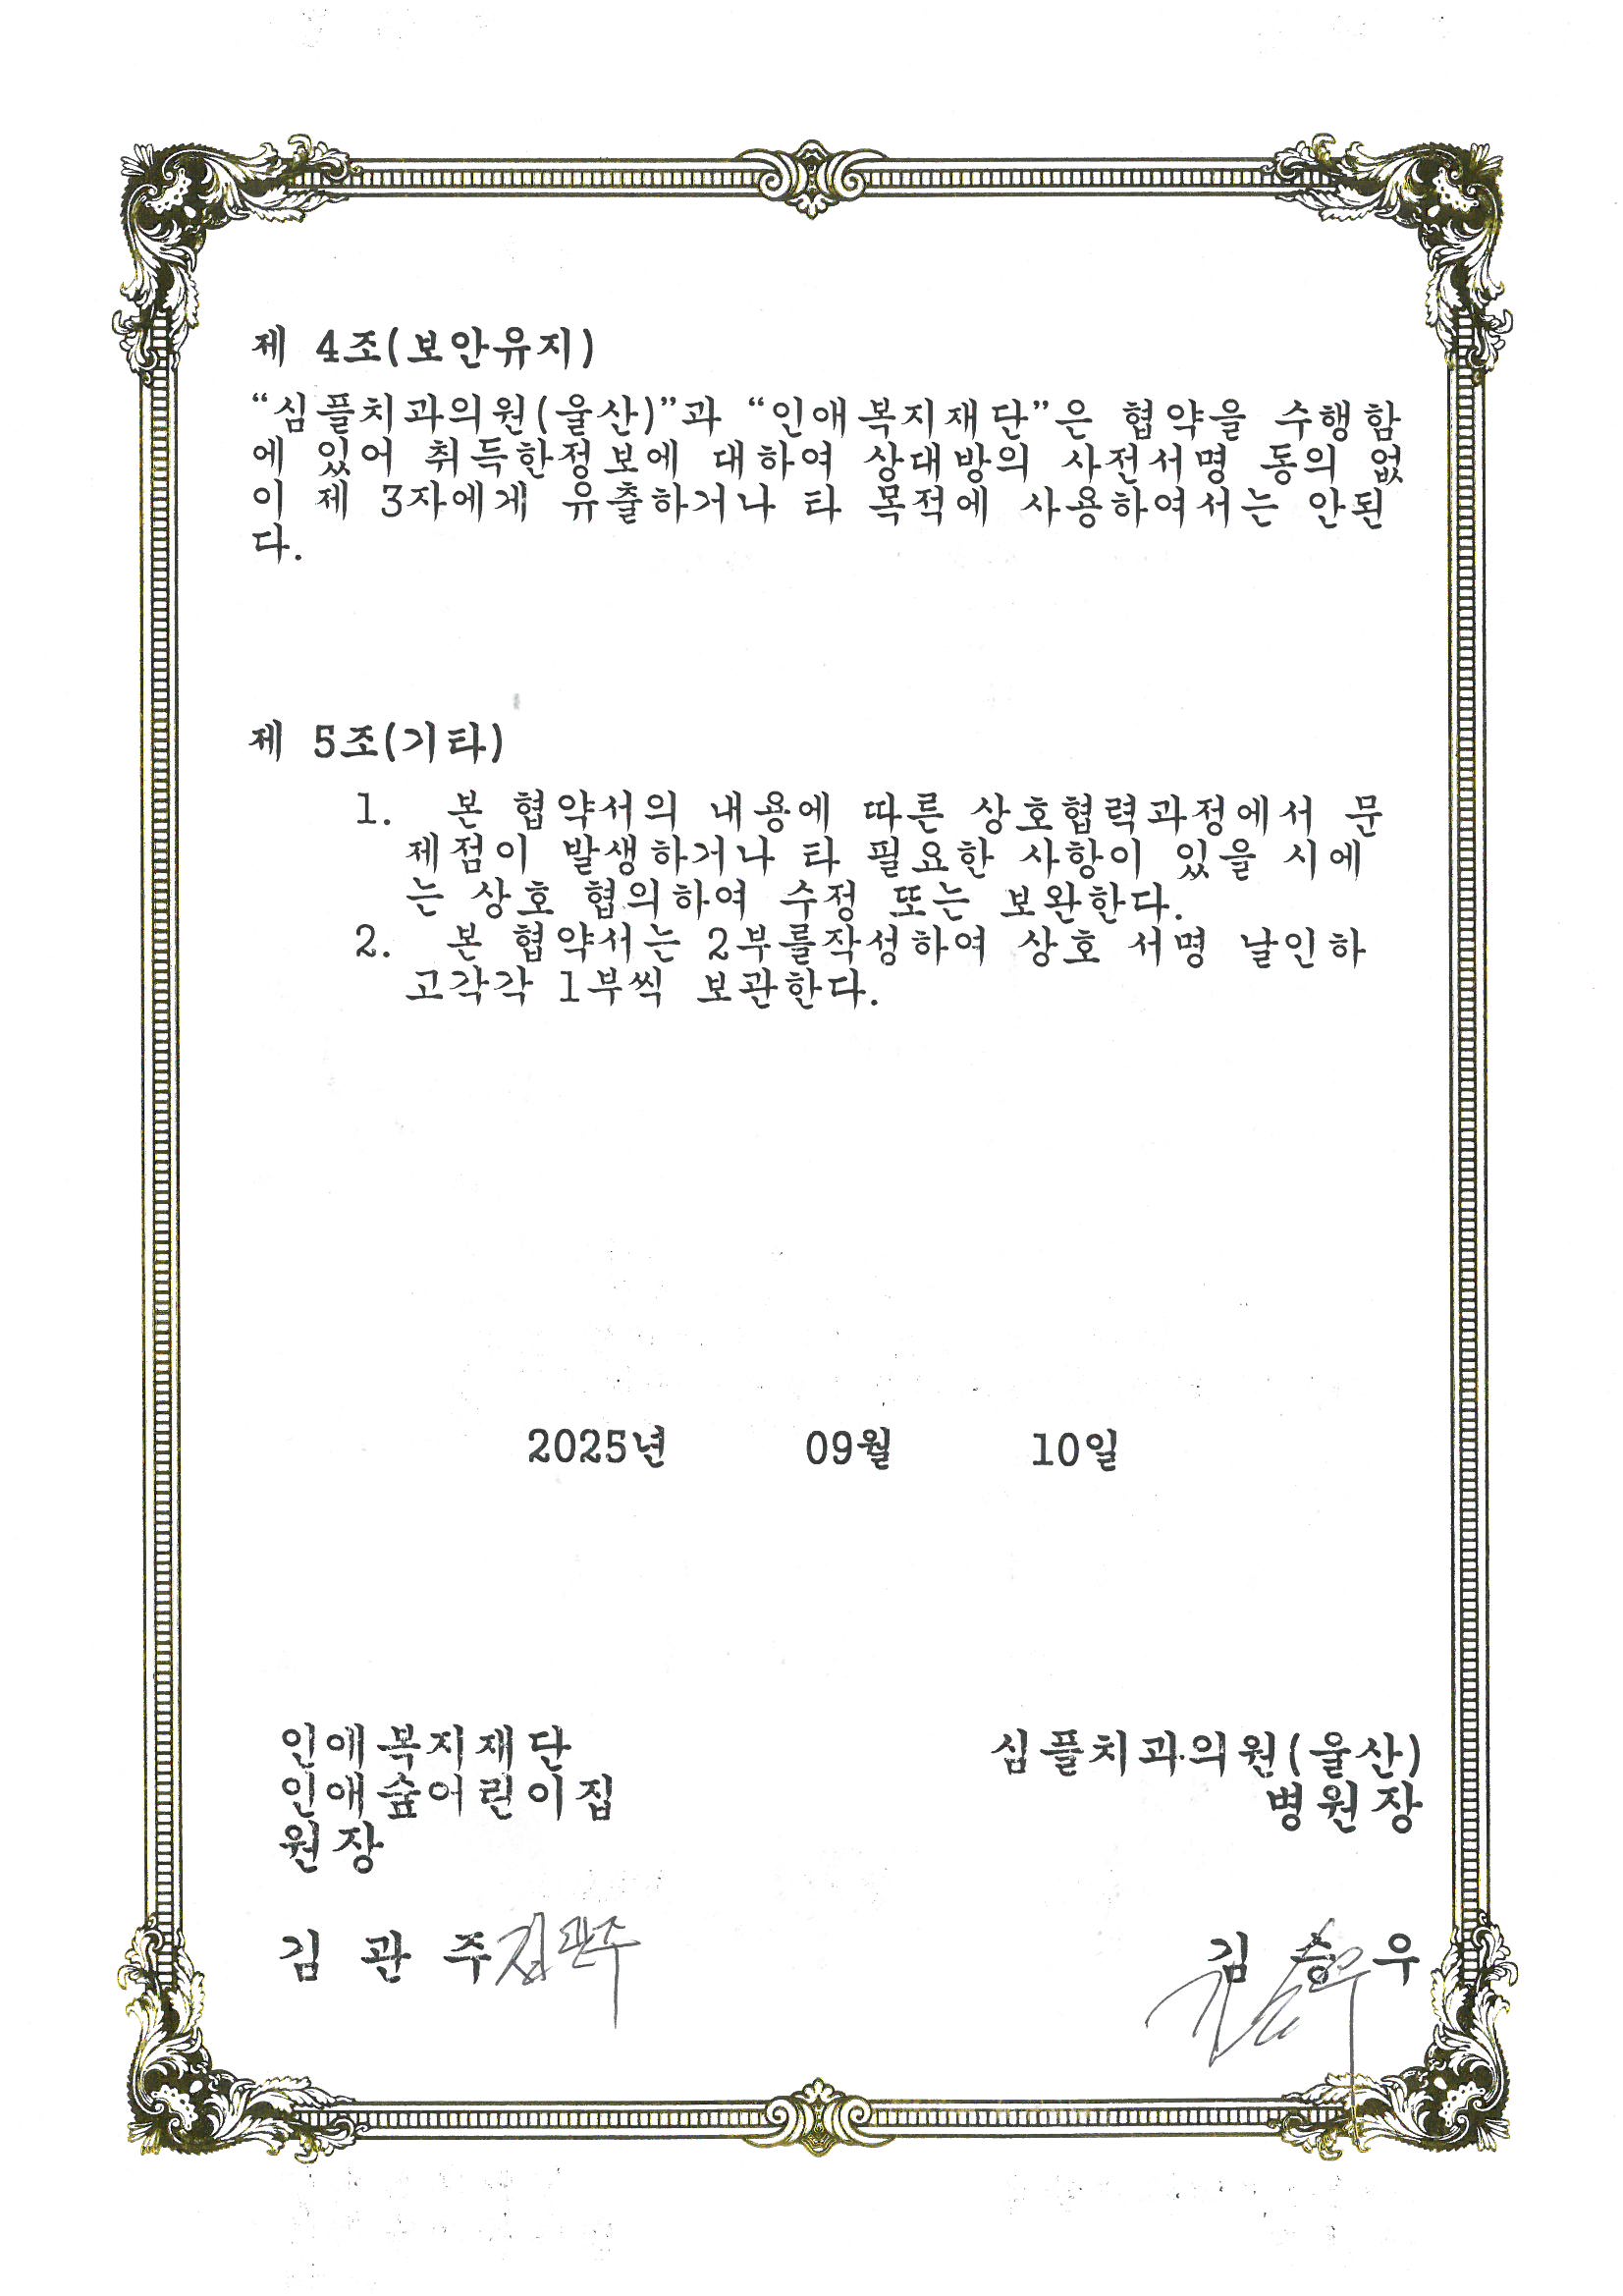 제 4조(보안유지)
“심플치과의원(울산)”과 “인애복지재단”은 협약을 수행함
에 있어 취득한정보에 대하여 상대방의 사전서명 동의 없
이 제 3자에게 유출하거나 타 목적에 사용하여서는 안된
다.
제 5조(기타)
1. 본 협약서의 내용에 따른 상호협력과정에서 문
제점이 발생하거나 타 필요한 사항이 있을 시에
는 상호 협의하여 수정 또는 보완한다.
2. 본 협약서는 2부를작성하여 상호 서명 날인하
고각각 1부씩 보관한다.
2025년 09월 10일
인애복지재단
인애숲어린이집
원장
김 관 주 김관주
심플치과의원(울산)
병원장
김 승 우